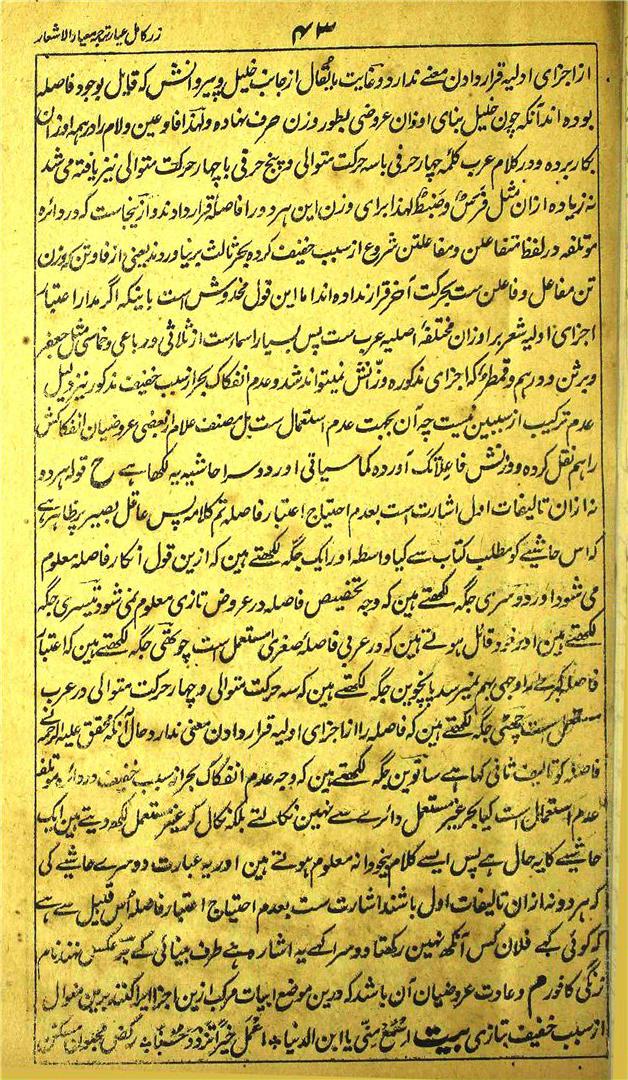 ۴۳
زر کامل عیار ترجمہ معیار الاشعار
از اجزای اولیہ قرار دادن معنے ندارد و غایت ما یقال از جانب خلیل و پیروانش کہ قایل بوجود فاصلہ
بودہ اند آنکہ چون خلیل بنای اوزان عروضی بطور وزن صرف نہادہ و لہذا فا و عین و لام را در ہمہ اوزان
بکار بردہ و در کلام عرب کلمہ چہار حرفی با سہ حرکت متوالی و پنج حرفی با چہار حرکت متوالی نیز یافتہ می شد
نہ زیادہ ازان مثل فرس و ضبط لہذا برای وزن این ہر دو را فاصلہ قرار دادند و از ینجاست کہ در دائرہ
موتلفہ در لفظ متفاعلن و مفاعلتن شروع از سبب خفیف کردہ بحر ثالث بر نیاوردند یعنی از فا و تن کہ وزن
تن مفاعل و فاعلن ست بحرکت آخر قرار ندادہ اند اما این قول مخدوش ست باینکہ اگر مدار اعتبار
اجزای اولیہ شعر بر اوزان مختلفہ اصلیہ عرب ست پس بسیار اسماست از ثلاثی و رباعی و خماسی مثل جعفر
و برثن و درہم و قمطر کہ اجزای مذکورہ وزانش نمیتواند شد و عدم انفکاک بحر از سبب خفیف مذکور نیز دلیل
عدم ترکیب از سببین نیست چہ آن بجہت عدم استعمال ست بل مصنف علام از بعضی عروضیان انفکاکش
را ہم نقل کردہ و وزنش فاعلاتک آوردہ کما سیاتی اور دوسرا حاشیہ یہ لکھا ہے ح قولہ ہر دو
نہ ازان تالیفات اول اشارت ست بعدم احتیاج اعتبار فاصلہ تم کلامہ پس عاقل بصیر پر ظاہر ہے
کہ اس حاشیے کو مطلب کتاب سے کیا واسطہ اور ایک جگہ لکھتے ہین کہ ازین قول انکار فاصلہ معلوم
می شود اور دوسری جگہ لکھتے ہین کہ وجہ تخصیص فاصلہ در عروض تازی معلوم نمی شود تیسری جگہ
لکھتے ہین اور خود قائل ہوتے ہین کہ در عربی فاصلہ صغری مستعمل ست چوتھی جگہ لکھتے ہین کہ اعتبار
فاصلہ کبرے را وجہی بہم نمیرسد پانچوین جگہ لکھتے ہین کہ سہ حرکت متوالی و چہار حرکت متوالی در عرب
مستعمل ست چھٹی جگہ لکھتے ہین کہ فاصلہ را از اجزای اولیہ قرار دادن معنی ندارد حال آنکہ محقق علیہ الرحمۃ نے
فاصلہ کو تالیف ثانی کہا ہے ساتوین جگہ لکھتے ہین کہ وجہ عدم انفکاک بحر از سبب خفیف در دائرہ موتلفہ
عدم استعمال ست کیا بحر غیر مستعمل دائرے سے نہین نکالتے بلکہ نکال کر غیر مستعمل لکھ دیتے ہین ایک
حاشیے کا یہ حال ہے پس ایسے کلام بیخودانہ معلوم ہوتے ہین اور یہ عبارت دوسرے حاشیے کی
کہ ہر دو نہ ازان تالیفات اول باشند اشارت ست بعدم احتیاج اعتبار فاصلہ اس قبیل سے ہے
کہ کوئی کہے فلان کس آنکھ نہین رکھتا دوسرا کہے یہ اشارہ ہے طرف بینائی کے بر عکس نہند نام
زنگی کافور م و عادت عروضیان آن باشد کہ درین موضع ابیات مرکب ازین اجزا ایراد کنند برین منوال
از سبب خفیف بتازی بیت اسمع منی یا ابن الدنیا ٭ اعمل خیرا تزدد حسنا ٭ رکض مخبون مسکن